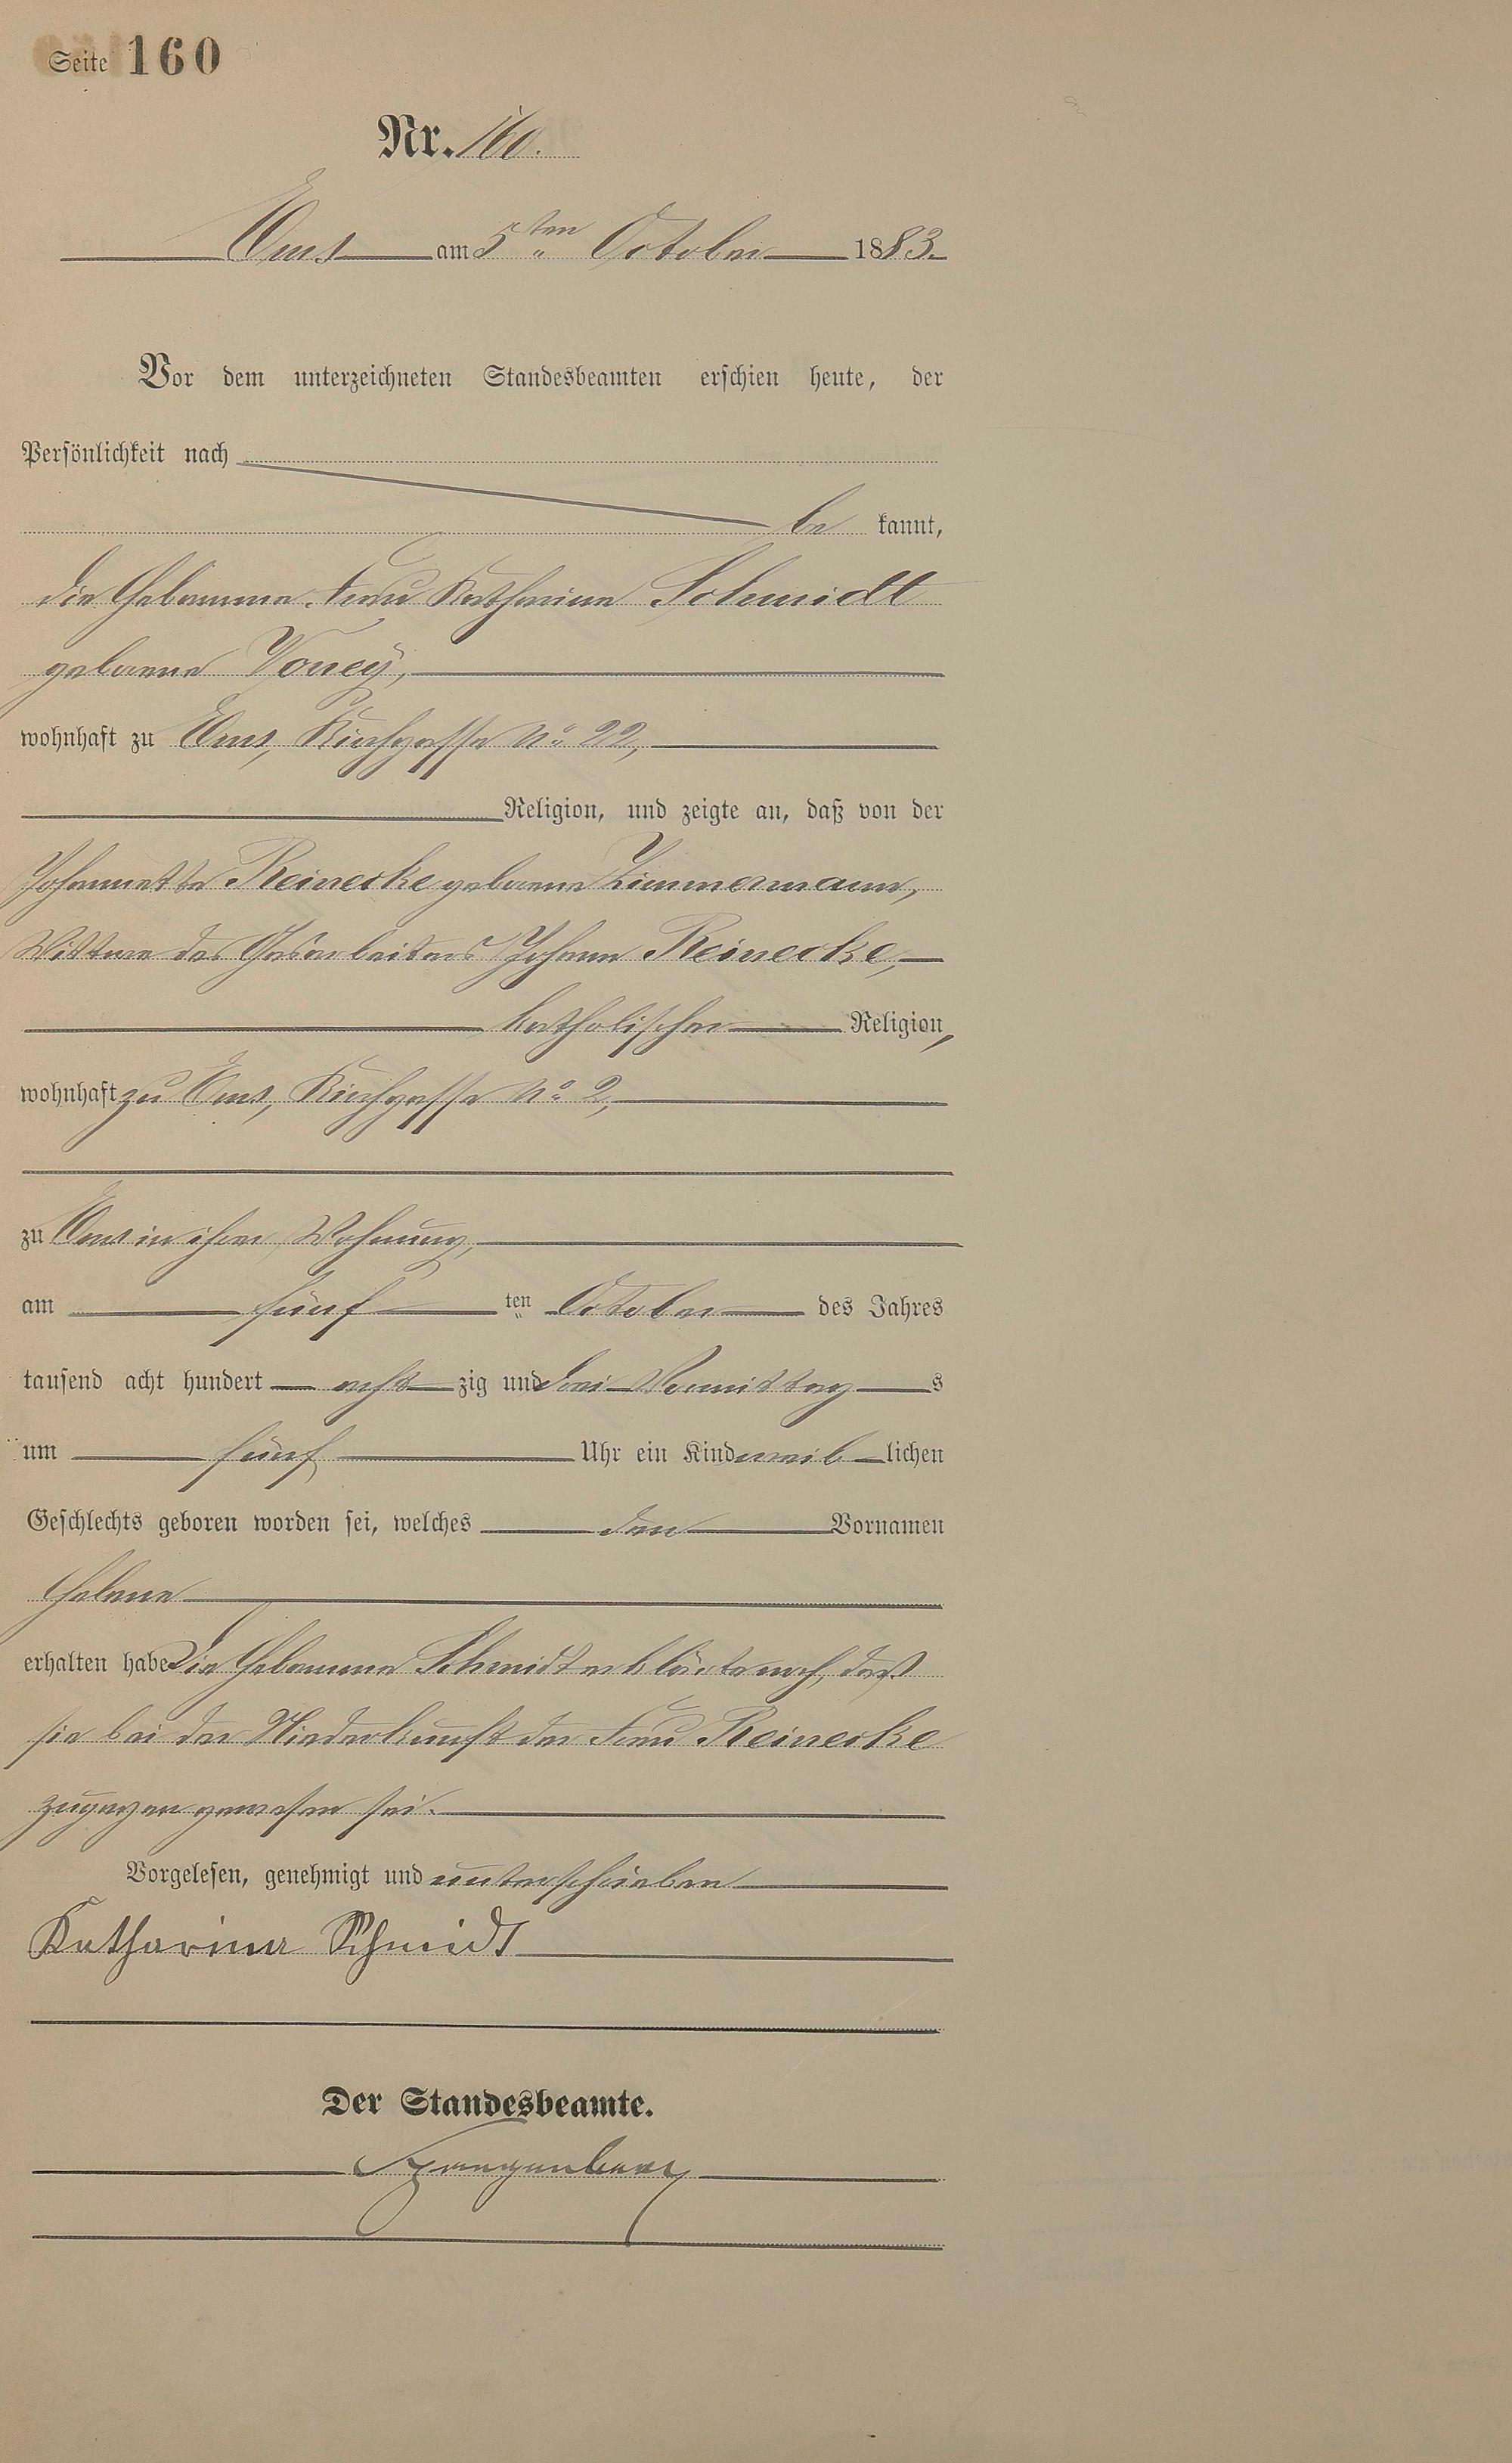 Seite 160
Nr. 160.
Ems am 5ten October 1883.
Vor dem unterzeichneten Standesbeamten erschien heute, der
Persönlichkeit nach
be kannt,
die Hebamme Frau Katharina Schmidt
geborene
wohnhaft zu Ems, Kirchgasse No. 22,
Religion, und zeigte an, daß von der
Johannette Reinecke geborene Zimmermann,
Wittwe des Gasarbeiters Johann Reinecke,
katholischer Religion,
wohnhaft zu Ems, Kirchgasse No. 2,
zu Ems in ihrer Wohnung,
am fünf ten October des Jahres
tausend acht hundert acht zig und drei Vormittag s
um fünf Uhr ein Kind weib lichen
Geschlechts geboren worden sei, welches den Vornamen
Helene
erhalten habe Die Hebamme Schmidt erklärte noch, daß
sie bei der Niederkunft der Frau Reinecke
zugegen gewesen sei.
Vorgelesen, genehmigt und unterschrieben
Katharina Schmidt
Der Standesbeamte.
Spangenberg